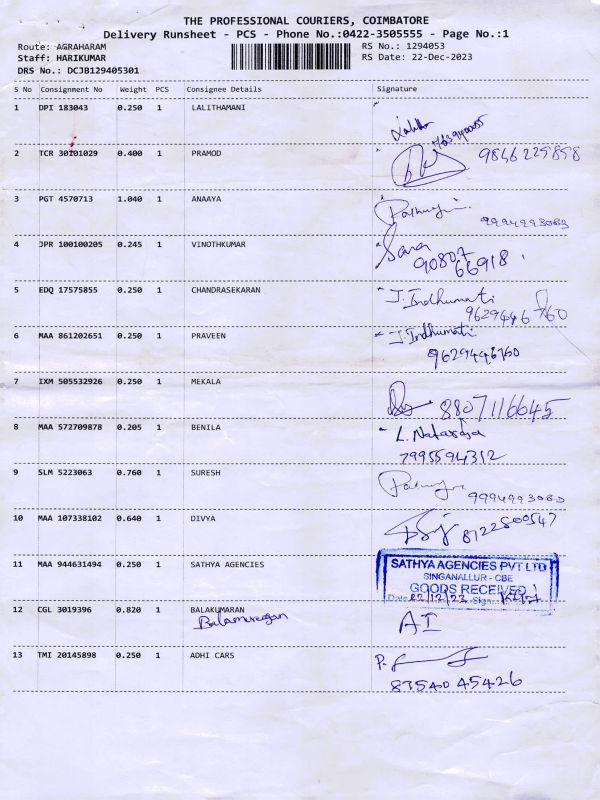 THE PROFESSIONAL COURIERS, COIMBATORE
Delivery Runsheet - PCS - Phone No.:0422-3505555 - Page No.:1
Route: AGRAHARAM
RS No.: 1294053
Staff: HARIKUMAR
RS Date: 22-Dec-2023
DRS No.: DCJB129405301
S No Consignment No Weight PCS Consignee Details Signature
1 DPI 183043 0.250 1 LALITHAMANI
2 TCR 30101029 0.400 1 PRAMOD
9846225858
3 PGT 4570713 1.040 1 ANAAYA
9994993083
4 JPR 100100205 0.245 1 VINOTHKUMAR
Sara
90807
66918
5 EDQ 17575855 0.250 1 CHANDRASEKARAN
J. Indhumati
9629446760
6 MAA 861202651 0.250 1 PRAVEEN
J. Indhumati
9629446760
7 IXM 505532926 0.250 1 MEKALA
8807116645
8 MAA 572709878 0.205 1 BENILA
L. Nataraja
7995594312
9 SLM 5223063 0.760 1 SURESH
9994993083
10 MAA 107338102 0.640 1 DIVYA
8122500547
11 MAA 944631494 0.250 1 SATHYA AGENCIES
SATHYA AGENCIES PVT LTD
SINGANALLUR - CBE
GOODS RECEIVED
Date 22/12/23 Sign
12 CGL 3019396 0.820 1 BALAKUMARAN
Balamurugan
AI
13 TMI 20145898 0.250 1 ADHI CARS
8754045426